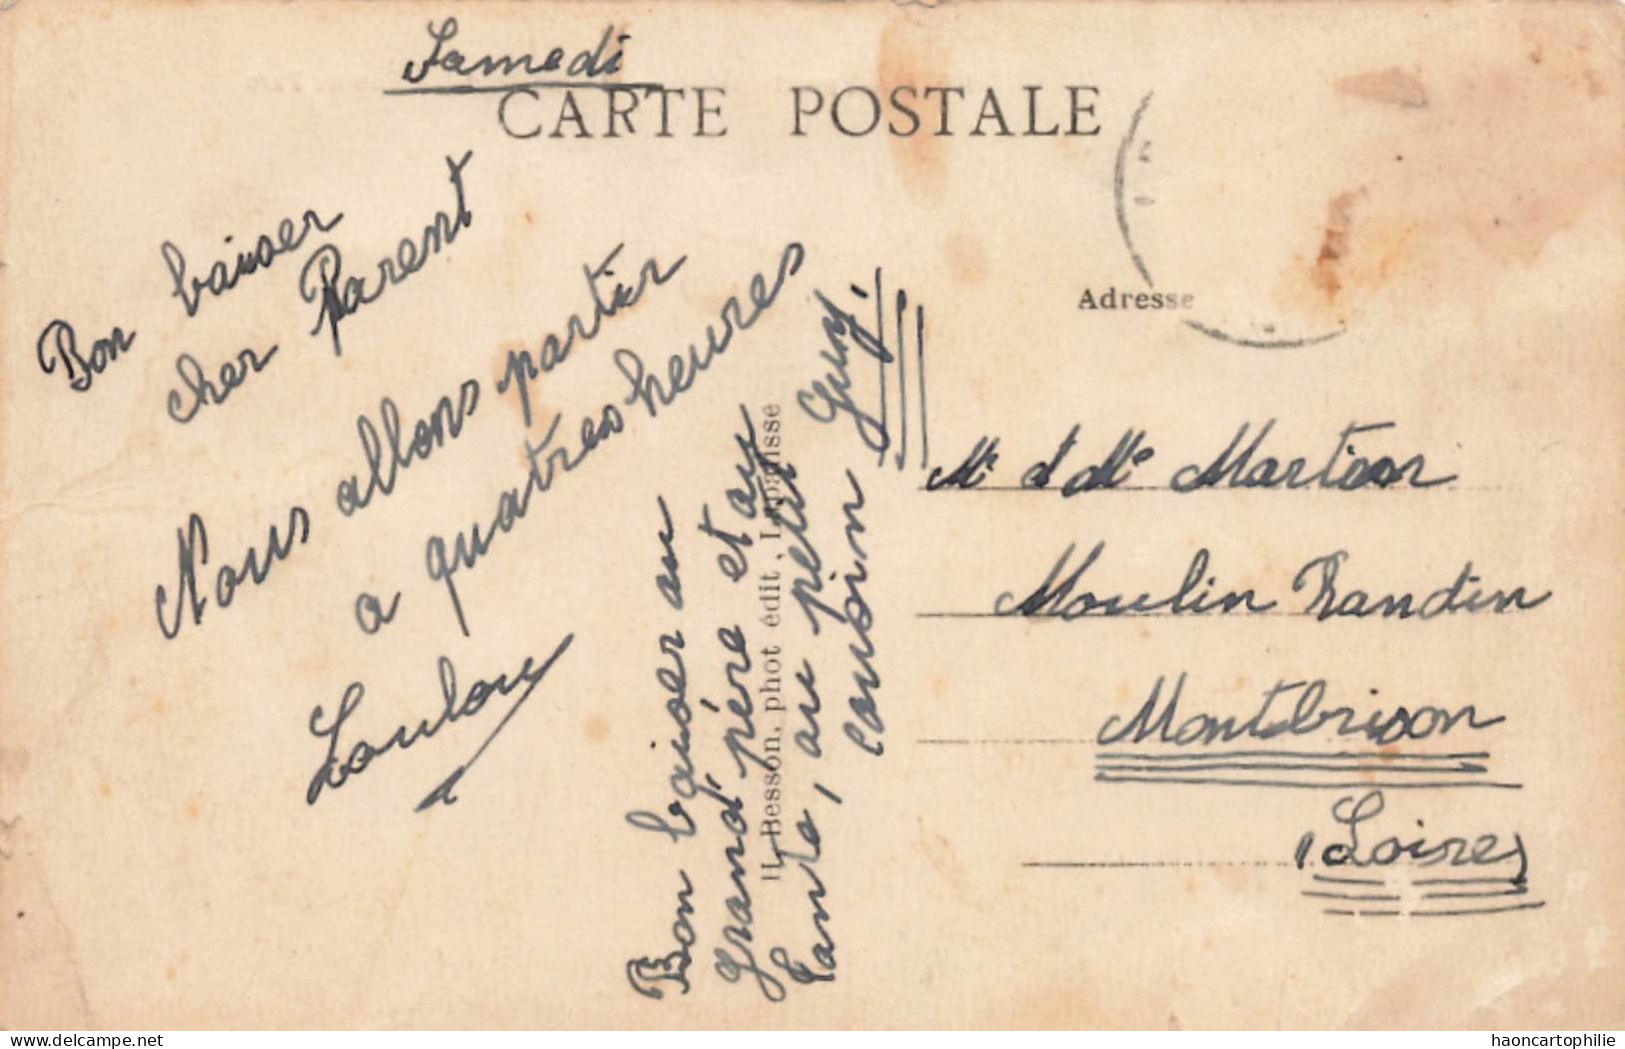 Samedi
CARTE POSTALE
Bon baiser
cher Parent
Nous allons partir
a quatres heures
Loulou
Bon baiser au
Grand'père et au
Tante, au petit
cousin Guy.
H. Besson, phot édit, Lapalisse
Adresse
Mr et Me
Moulin Randin
Montbrison
(Loire)
delcampe.net
haoncartophilie